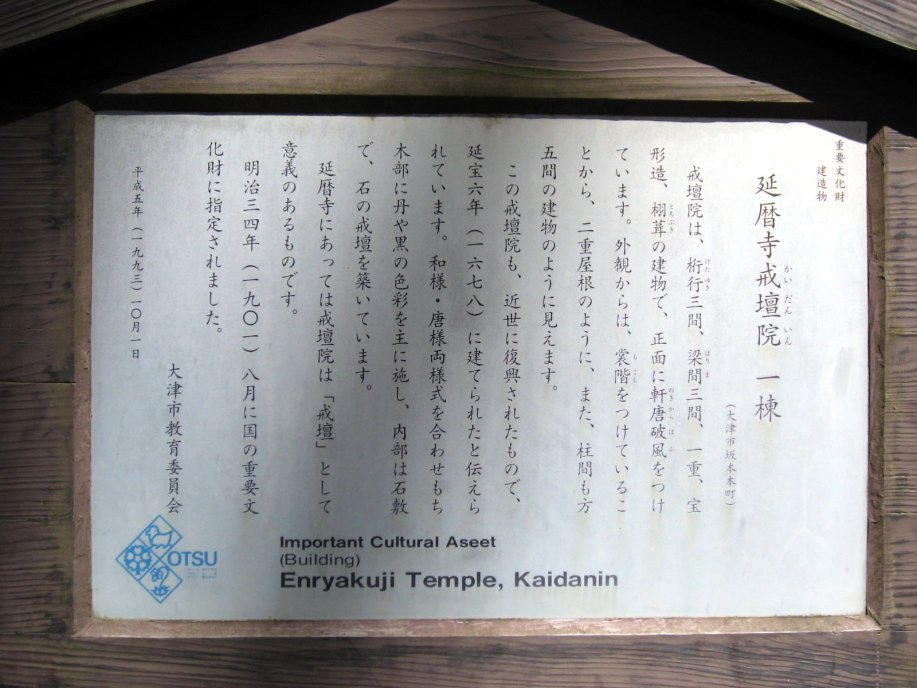 重要文化財
建造物
延暦寺戒壇院 一棟
かいだんいん
(大津市坂本本町)
戒壇院は、桁行三間、梁間三間、一重、宝
けたゆき
はりま
形造、栩葺の建物で、正面に軒唐破風をつけ
とちぶき
のきからはふ
ています。外観からは、裳階をつけているこ
もこし
とから、二重屋根のように、また、柱間も方
五間の建物のように見えます。
この戒壇院も、近世に復興されたもので、
延宝六年(一六七八)に建てられたと伝えら
れています。和様・唐様両様式を合わせもち
木部に丹や黒の色彩を主に施し、内部は石敷
で、石の戒壇を築いています。
延暦寺にあっては戒壇院は「戒壇」として
意義のあるものです。
明治三四年(一九〇一)八月に国の重要文
化財に指定されました。
平成五年(一九九三)一〇月一日
大津市教育委員会
OTSU
Important Cultural Aseet
(Building)
Enryakuji Temple, Kaidanin